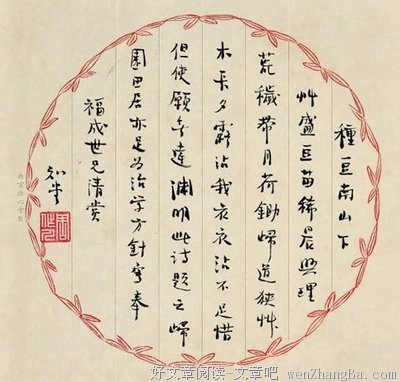 種豆南山下
艸盛豆苗稀晨興理
荒穢帶月荷鋤歸道狹艸
木長夕露沾我衣衣沾不足惜
但使願無違淵明此詩題云歸
園田居亦是为治学方針写奉
福成世兄清赏
知堂
好文章阅读-文章吧 wenZhangBa.com